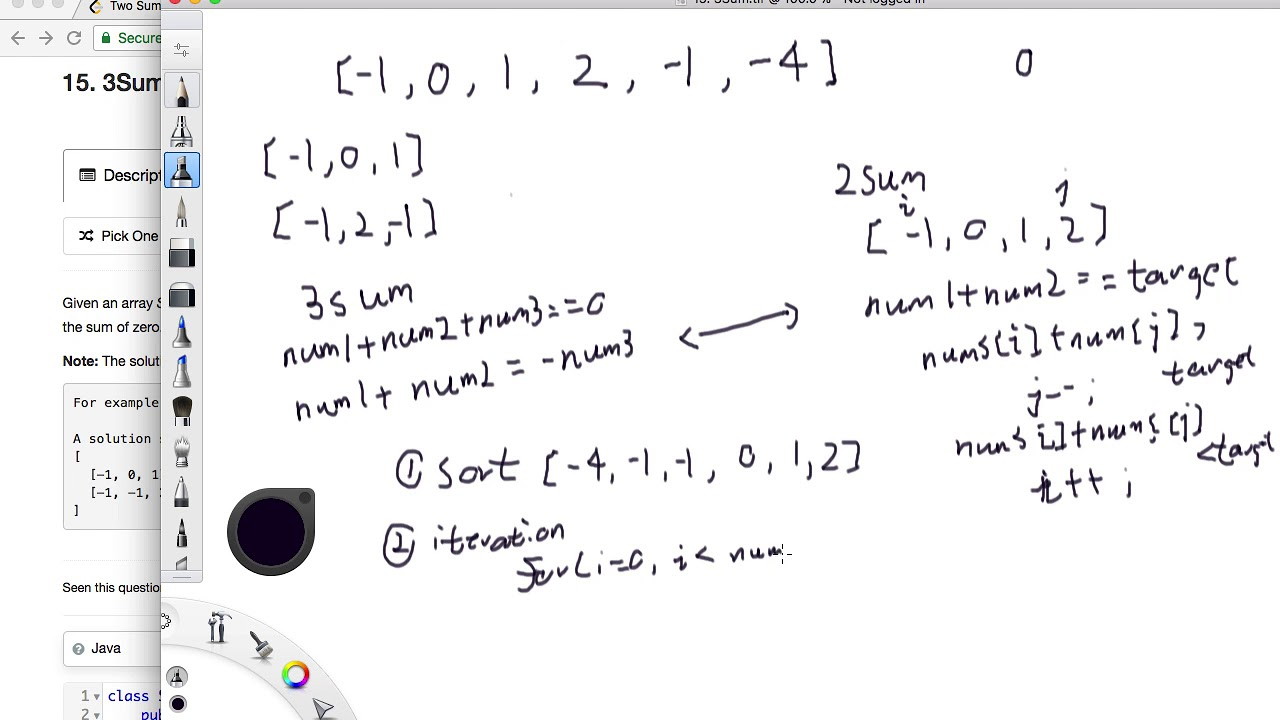 Two Sum
15. 3Sum.tif @ 100.0 % - Not logged in
Secure
15. 3Sum
Descript
Pick One
Given an array S
the sum of zero.
Note: The solut
For example
A solution s
[
[-1, 0, 1
[-1, -1, 2
]
Seen this questio
Java
1 class S
2 pub
[-1, 0, 1, 2, -1, -4] 0
[-1, 0, 1]
[-1, 2, -1]
3sum
num1+num2+num3==0
num1+ num2 = -num3
2Sum
i j
[-1, 0, 1, 2]
num1+num2 == target
nums[i]+num[j]>
target
j--;
nums[i]+nums[j]
<target
i++;
① Sort [-4, -1, -1, 0, 1, 2]
② iteration
for(i=0, i< num